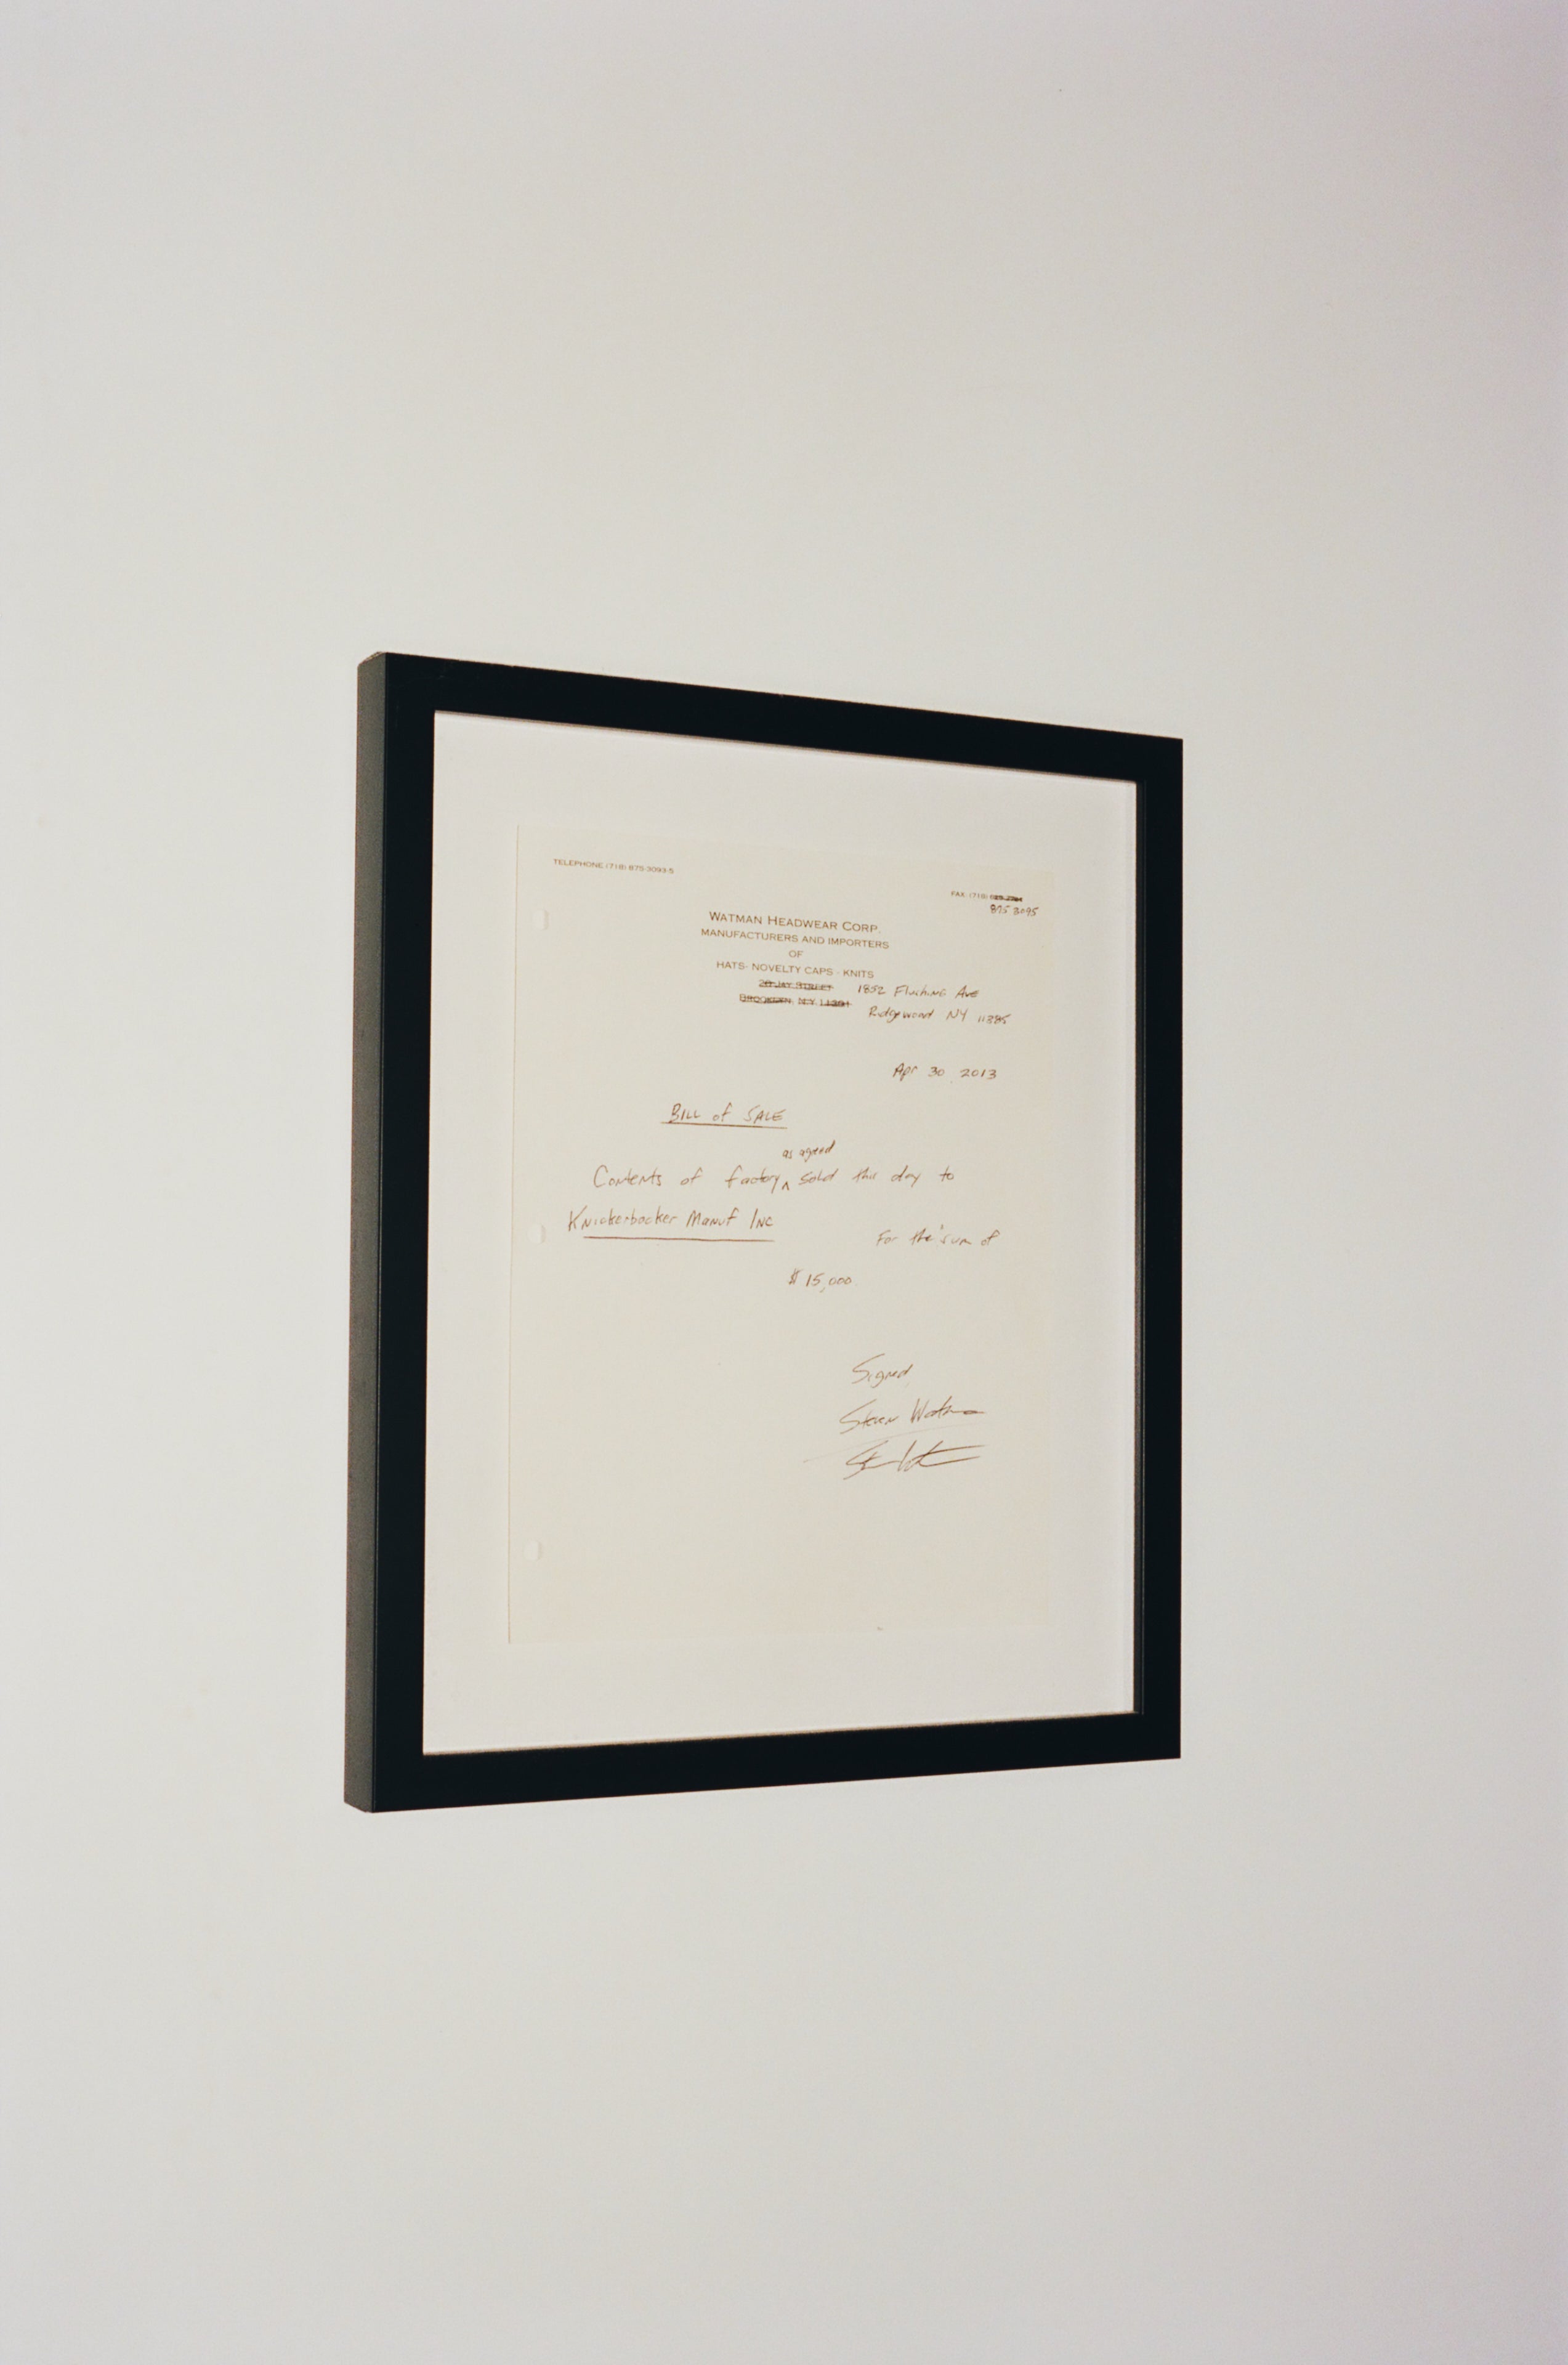 TELEPHONE (718) 875-3093-5
FAX (718)
875 3095
WATMAN HEADWEAR CORP.
MANUFACTURERS AND IMPORTERS
OF
HATS - NOVELTY CAPS - KNITS
20 JAY STREET 1852 Flushing Ave
BROOKLYN, N.Y. 11201 Ridgewood NY 11385
Apr 30 2013
BILL of SALE
as agreed
Contents of factory ^ sold this day to
Knickerbocker Manuf Inc For the sum of
$ 15,000.
Signed
Steven Watman